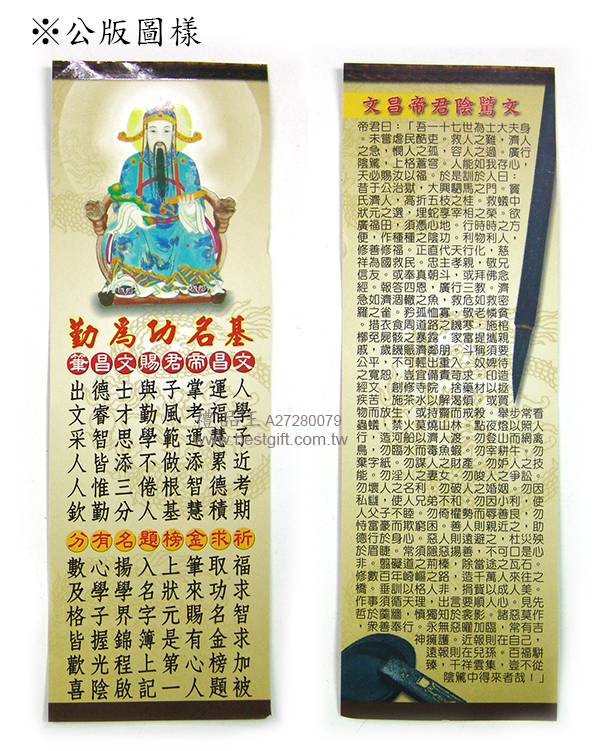 ※公版圖樣
勤爲功名基
文人學子近考期
昌運福慧累德積
帝掌考運添智慧
君子風範做根基
賜與勤學不倦人
文士才思添三分
昌德睿智皆惟勤
筆出文采人人欽
祈福求智求加被
求取功名金榜題
金筆來賜有心人
榜上狀元是第一
題入名字簿上記
名揚學界錦程啟
有心學子握光陰
分數及格皆歡喜
文昌帝君陰騭文
帝君曰：「吾一十七世為士大夫身
。未嘗虐民酷吏。救人之難，濟人
之急，憫人之孤，容人之過。廣行
陰騭，上格蒼穹。人能如我存心，
天必賜汝以福。於是訓於人曰：
昔于公治獄，大興駟馬之門。竇
氏濟人，高折五枝之桂。救蟻中
狀元之選，埋蛇享宰相之榮。欲
廣福田，須憑心地。行時時之方
便，作種種之陰功。利物利人，
修善修福。正直代天行化，慈
祥為國救民。忠主孝親，敬兄
信友。或奉真朝斗，或拜佛念
經。報答四恩，廣行三教。濟
急如濟涸轍之魚，救危如救密
羅之雀。矜孤恤寡，敬老憐貧
。措衣食周道路之饑寒，施棺
槨免屍骸之暴露。家富提攜親
戚，歲饑賑濟鄰朋。斗稱須要
公平，不可輕出重入。奴婢待
之寬恕，豈宜備責苛求。印造
經文，創修寺院。捨藥材以拯
疾苦，施茶水以解渴煩。或買
物而放生，或持齋而戒殺。舉步常看
蟲蟻，禁火莫燒山林。點夜燈以照人
行，造河船以濟人渡。勿登山而網禽
鳥，勿臨水而毒魚蝦。勿宰耕牛。勿
棄字紙。勿謀人之財產。勿妒人之技
能。勿淫人之妻女。勿唆人之爭訟。
勿壞人之名利。勿破人之婚姻。勿因
私讎，使人兄弟不和。勿因小利，使
人父子不睦。勿倚權勢而辱善良，勿
恃富豪而欺窮困。善人則親近之，助
德行於身心。惡人則遠避之，杜災殃
於眉睫。常須隱惡揚善，不可口是心
非。翦礙道之荊榛，除當途之瓦石。
修數百年崎嶇之路，造千萬人來往之
橋。垂訓以格人非，捐貲以成人美。
作事須循天理，出言要順人心。見先
哲於羹牆，慎獨知於衾影。諸惡莫作
，衆善奉行。永無惡曜加臨，常有吉
神擁護。近報則在自己，
遠報則在兒孫。百福駢
臻，千祥雲集，豈不從
陰騭中得來者哉！」
禮品王 A27280079
www.bestgift.com.tw